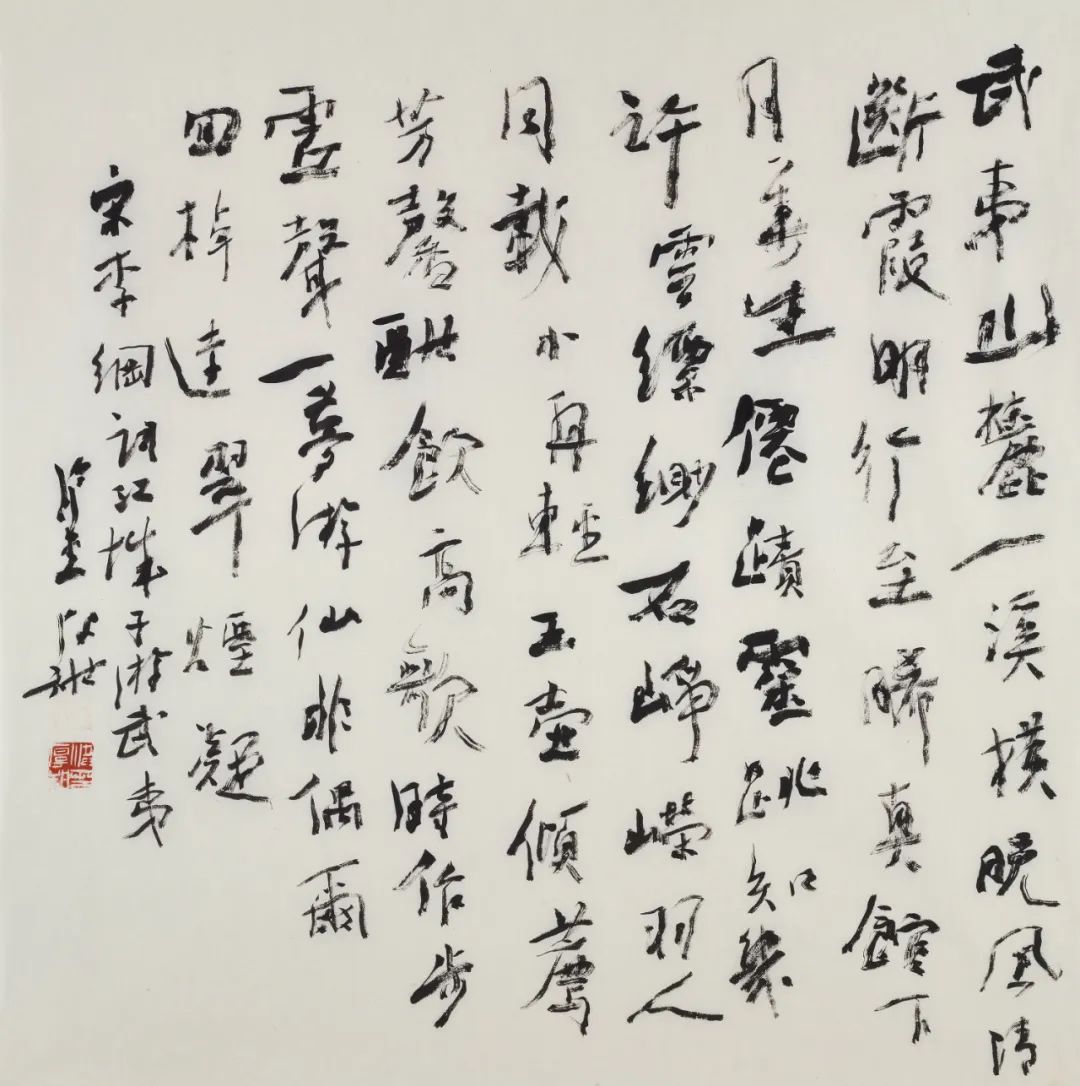 武夷山麓一溪横晚風清
斷霞明行至晞真館下
月華生僊蹟靈蹤知幾
許雲縹緲石崢嶸羽人
同載小舟輕玉壺傾薦
芳馨酣飲高歌時作步
虛聲一夢游仙非偶爾
回棹遠翠煙凝
宋李綱詞江城子游武夷